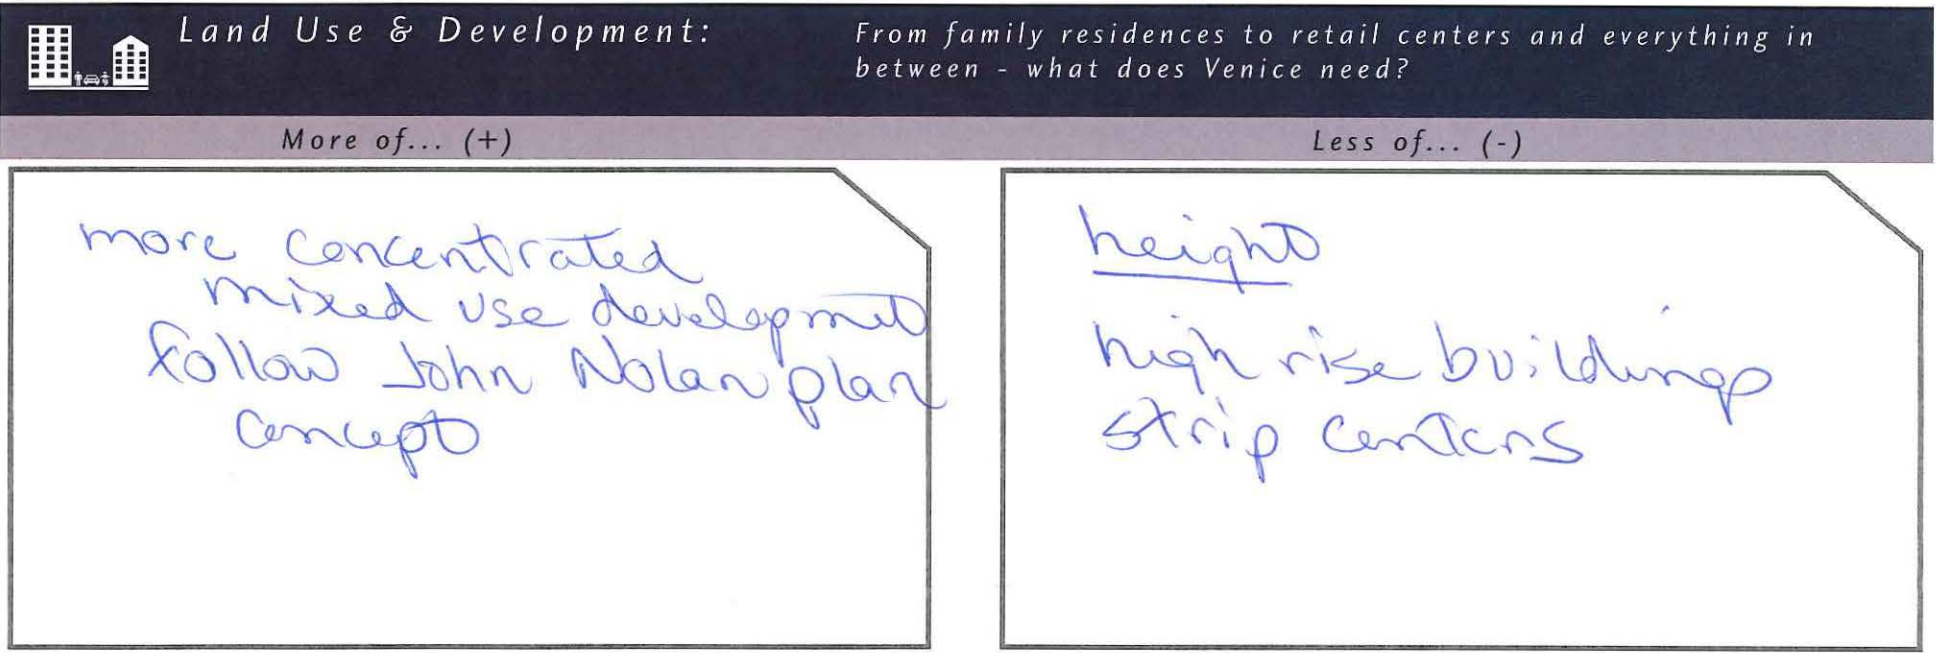 Land Use & Development:
From family residences to retail centers and everything in
between - what does Venice need?
More of... (+)
Less of... (-)
more concentrated
mixed use development
follow John Nolan plan
concept
height
high rise buildings
strip centers